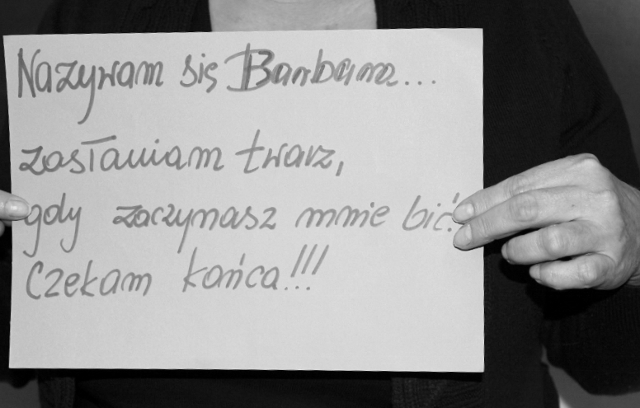 Nazywam się Barbara...
zasłaniam twarz,
gdy zaczynasz mnie bić.
Czekam końca!!!